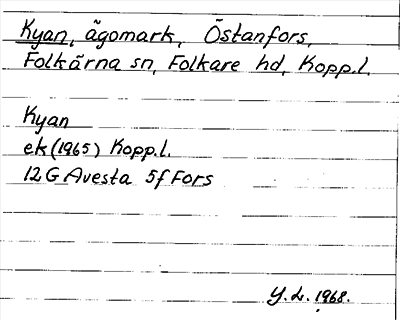 Kyan, ägomark, Östanfors,
Folkärna sn, Folkare hd, Kopp.l.
Kyan
ek (1965) Kopp.l.
12G Avesta 5f Fors
Y.L. 1968.